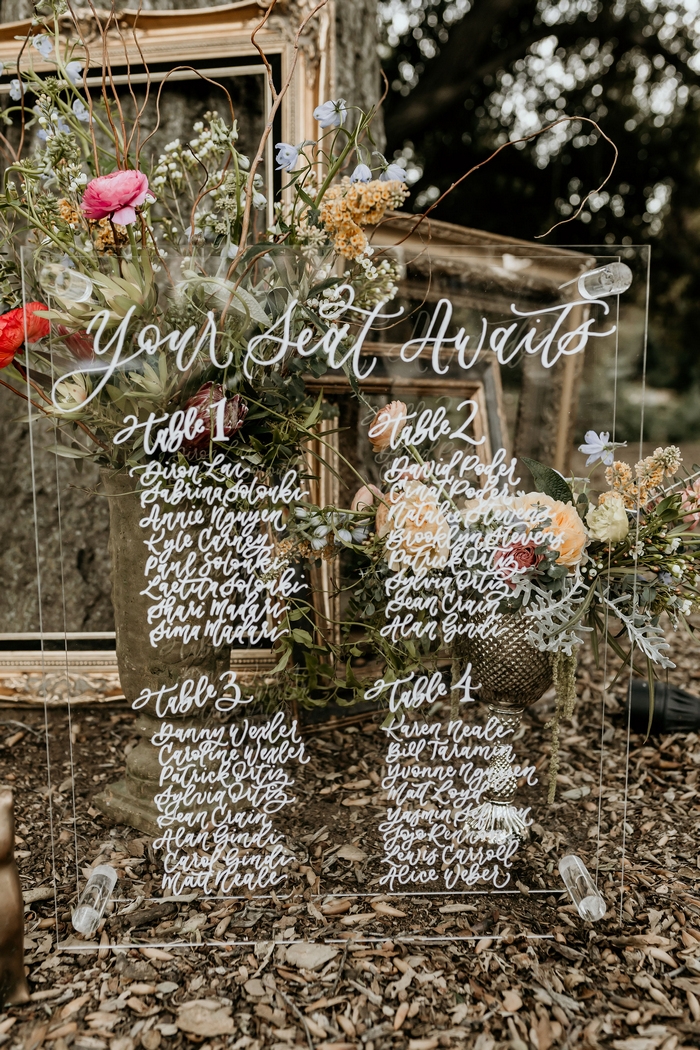 Your Seat Awaits
Table 1
Diron Lai
Sabrina Solouki
Annie Nguyen
Kyle Carney
Paul Solouki
Laetita Solouki
Shari Madari
Sima Madari
Table 2
David Poder
Poder
Natalie Stevens
Brooklyn Stevens
Patrick Ortiz
Sylvia Ortiz
Sean Crain
Alan Gindi
Table 3
Danny Wexler
Caroline Wexler
Patrick Ortiz
Sylvia Ortiz
Sean Crain
Alan Gindi
Carol Gindi
Matt Neale
Table 4
Karen Neale
Bill Taramin
Yvonne Nguyen
Matt Loyd
Yasmin
Jojo
Lewis Carroll
Alice Weber